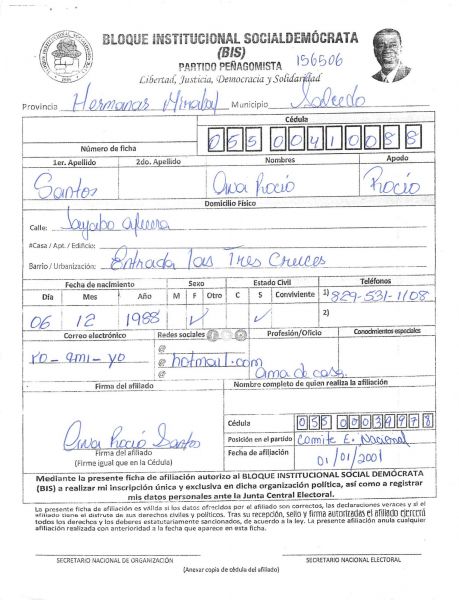 BLOQUE INSTITUCIONAL SOCIALDEMÓCRATA
(BIS)
PARTIDO PEÑAGOMISTA 156506
Libertad, Justicia, Democracia y Solidaridad
Provincia Hermanas Mirabal Municipio Salcedo
Cédula
Número de ficha 055 0041008 8
1er. Apellido 2do. Apellido Nombres Apodo
Santos Ana Rocio Rocio
Domicilio Físico
Calle: Jayabo afuera
#Casa / Apt. / Edificio:
Barrio / Urbanización: Entrada las Tres Cruces
Fecha de nacimiento Sexo Estado Civil Teléfonos
Día Mes Año M F Otro C S Conviviente 1) 829-531-1108
06 12 1988 ✓ ✓ 2)
Correo electrónico Redes sociales Profesión/Oficio Conocimientos especiales
ro-ami-yo @ hotmail.com
@
@ ama de casa
Firma del afiliado Nombre completo de quien realiza la afiliación
Cédula 055 0003997 8
Ana Rocio Santos Posición en el partido Comite E. Nacional
Firma del afiliado Fecha de afiliación 01/01/2001
(Firme igual que en la Cédula)
Mediante la presente ficha de afiliación autorizo al BLOQUE INSTITUCIONAL SOCIAL DEMÓCRATA
(BIS) a realizar mi inscripción única y exclusiva en dicha organización política, así como a registrar
mis datos personales ante la Junta Central Electoral.
La presente ficha de afiliación es válida si los datos ofrecidos por el afiliado son correctos, las declaraciones veraces y si el
afiliado tiene el disfrute de sus derechos civiles y políticos. Tras su recepción, sello y firma autorizadas el afiliado ejercerá
todos los derechos y los deberes estatutariamente sancionados, de acuerdo a la ley. La presente afiliación anula cualquier
afiliación realizada con anterioridad a la fecha que aparece en esta ficha.
SECRETARIO NACIONAL DE ORGANIZACIÓN SECRETARIO NACIONAL ELECTORAL
(Anexar copia de cédula del afiliado)